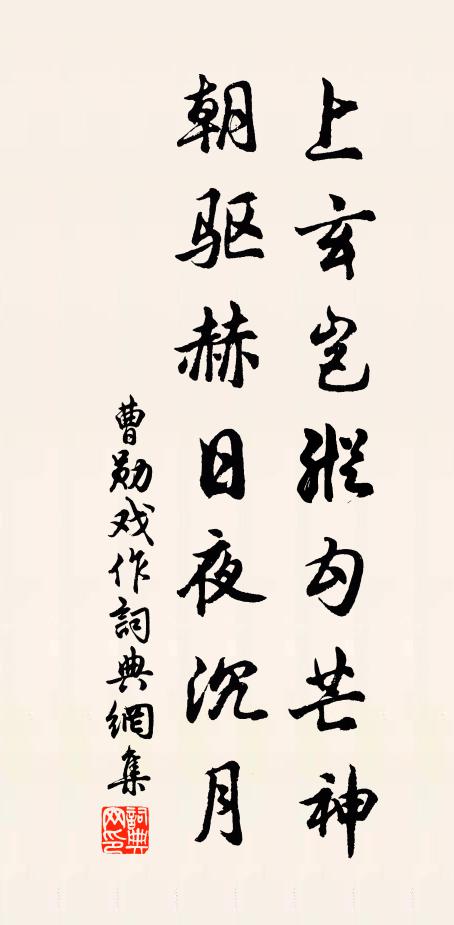 上玄岂縱勾芒神
朝驱赫日夜沉月
曹勋戏作詞典網集
詞典网印